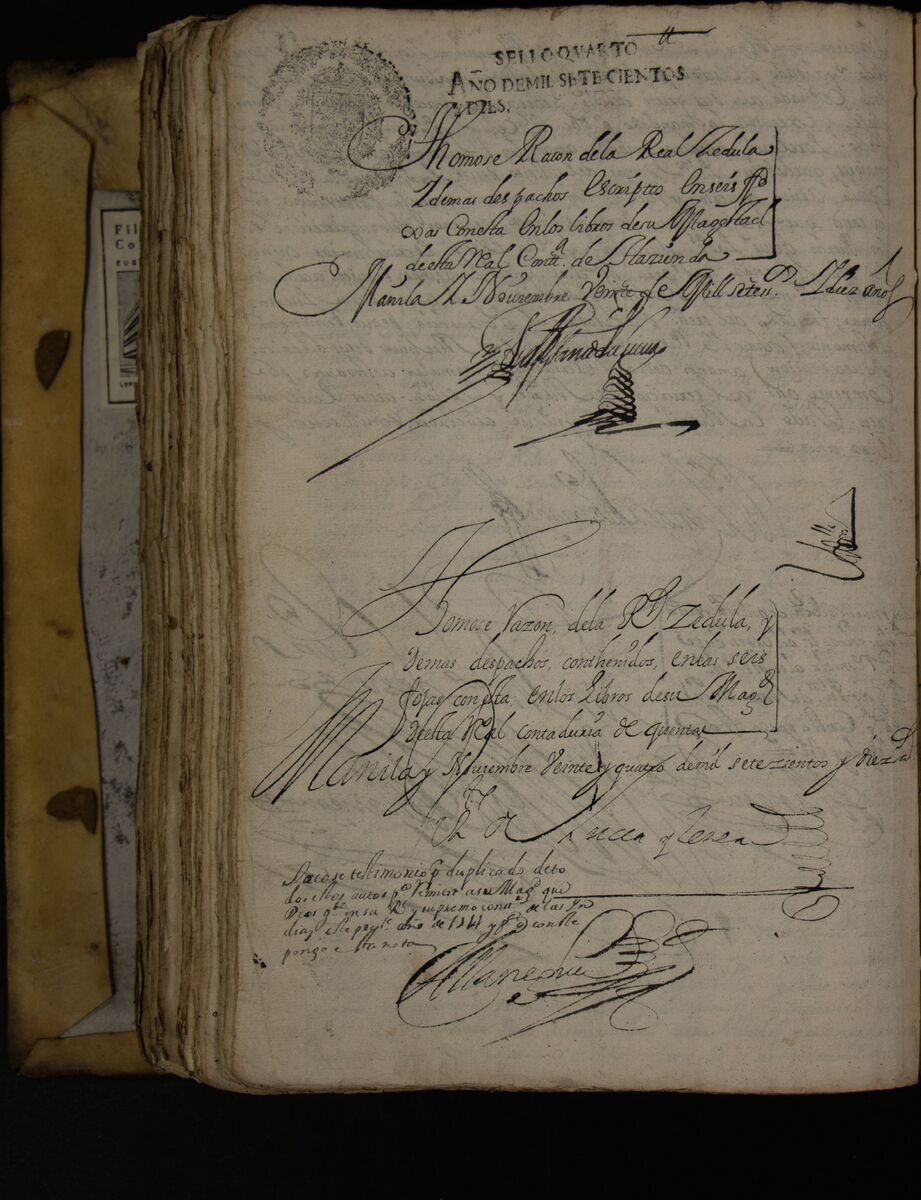 SELLO QVARTO
AÑO DE MIL SETECIENTOS
Y DIES.
Thomose Raçon dela Real Zedula
Y demas despachos Escriptos En seis fo
xas Consta En los libros desu Magestad
de esta Real Contta. de Hazienda
Manila Y Nouiembre Veinte de Mill setess. Y diez años
Thomose razon, dela Rl. Zedula, y
demas despachos, conthenidos, enlas seis
fojas consta, enlos Libros desu Magd.
desta Real contaduria de quentas
Manila y Nouiembre Veinte y quatro demil setezientos y diez as
Sacose testimonio pr. duplicado deto
dos estos autos pa. remitir a su Magd. que
Dios ge. en su Rl. y supremo conso. de las Yn
dias este preste. año de 1711 y pa. q conste
pongo esta nota